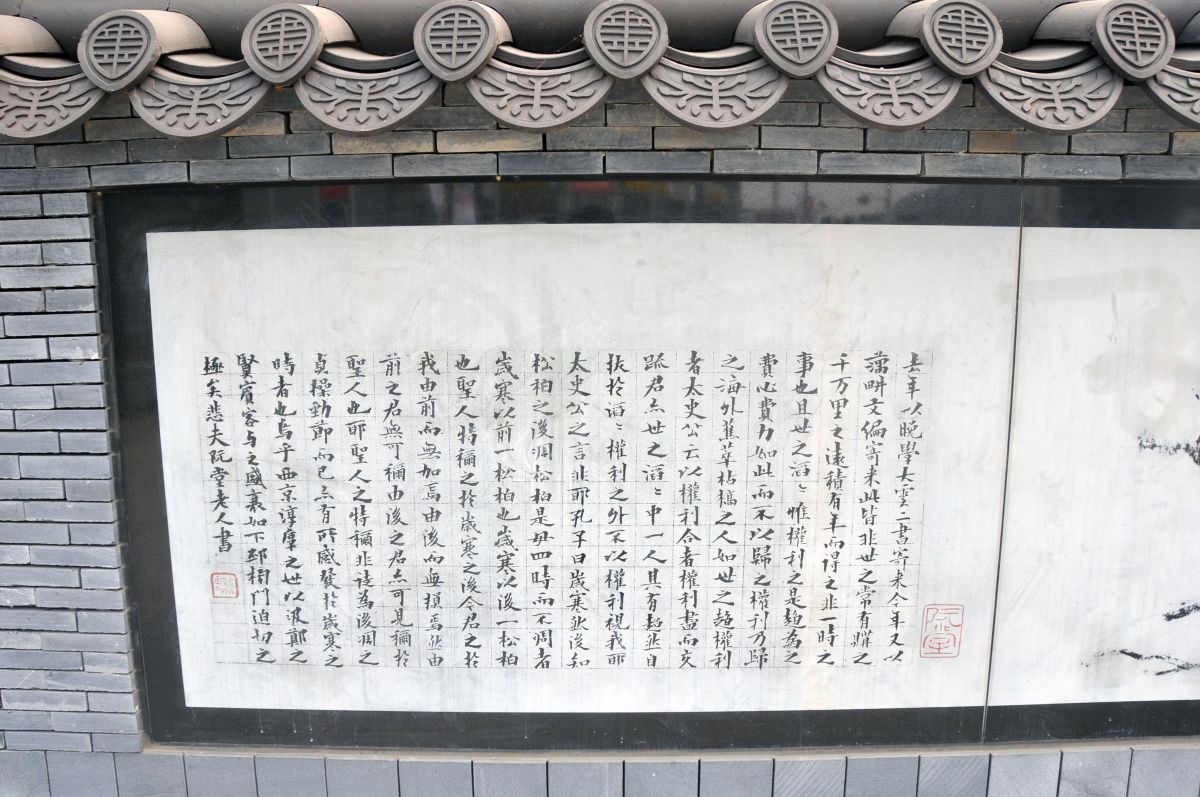 去年以晚學大雲二書寄来今年又以
藕畊文編寄来此皆非世之常有購之
千万里之遠積有年而得之非一時之
事也且世之滔〻惟權利之是趨為之
費心費力如此而不以歸之權利乃歸
之海外蕉萃枯槁之人如世之趨權利
者太史公云以權利合者權利盡而交
踈君亦世之滔〻中一人其有超然自
拔扵滔〻權利之外不以權利視我耶
太史公之言非耶孔子曰歲寒然後知
松柏之後凋松柏是毋四時而不凋者
歲寒以前一松柏也歲寒以後一松柏
也聖人特稱之扵歲寒之後今君之扵
我由前而無加焉由後而無損焉然由
前之君無可稱由後之君亦可見稱扵
聖人也耶聖人之特稱非徒為後凋之
貞操勁節而已亦有所感發扵歲寒之
時者也烏乎西京淳厖之世以汲鄭之
賢賓客与之盛衰如下邳榜門迫切之
極矣悲夫阮堂老人書
阮堂